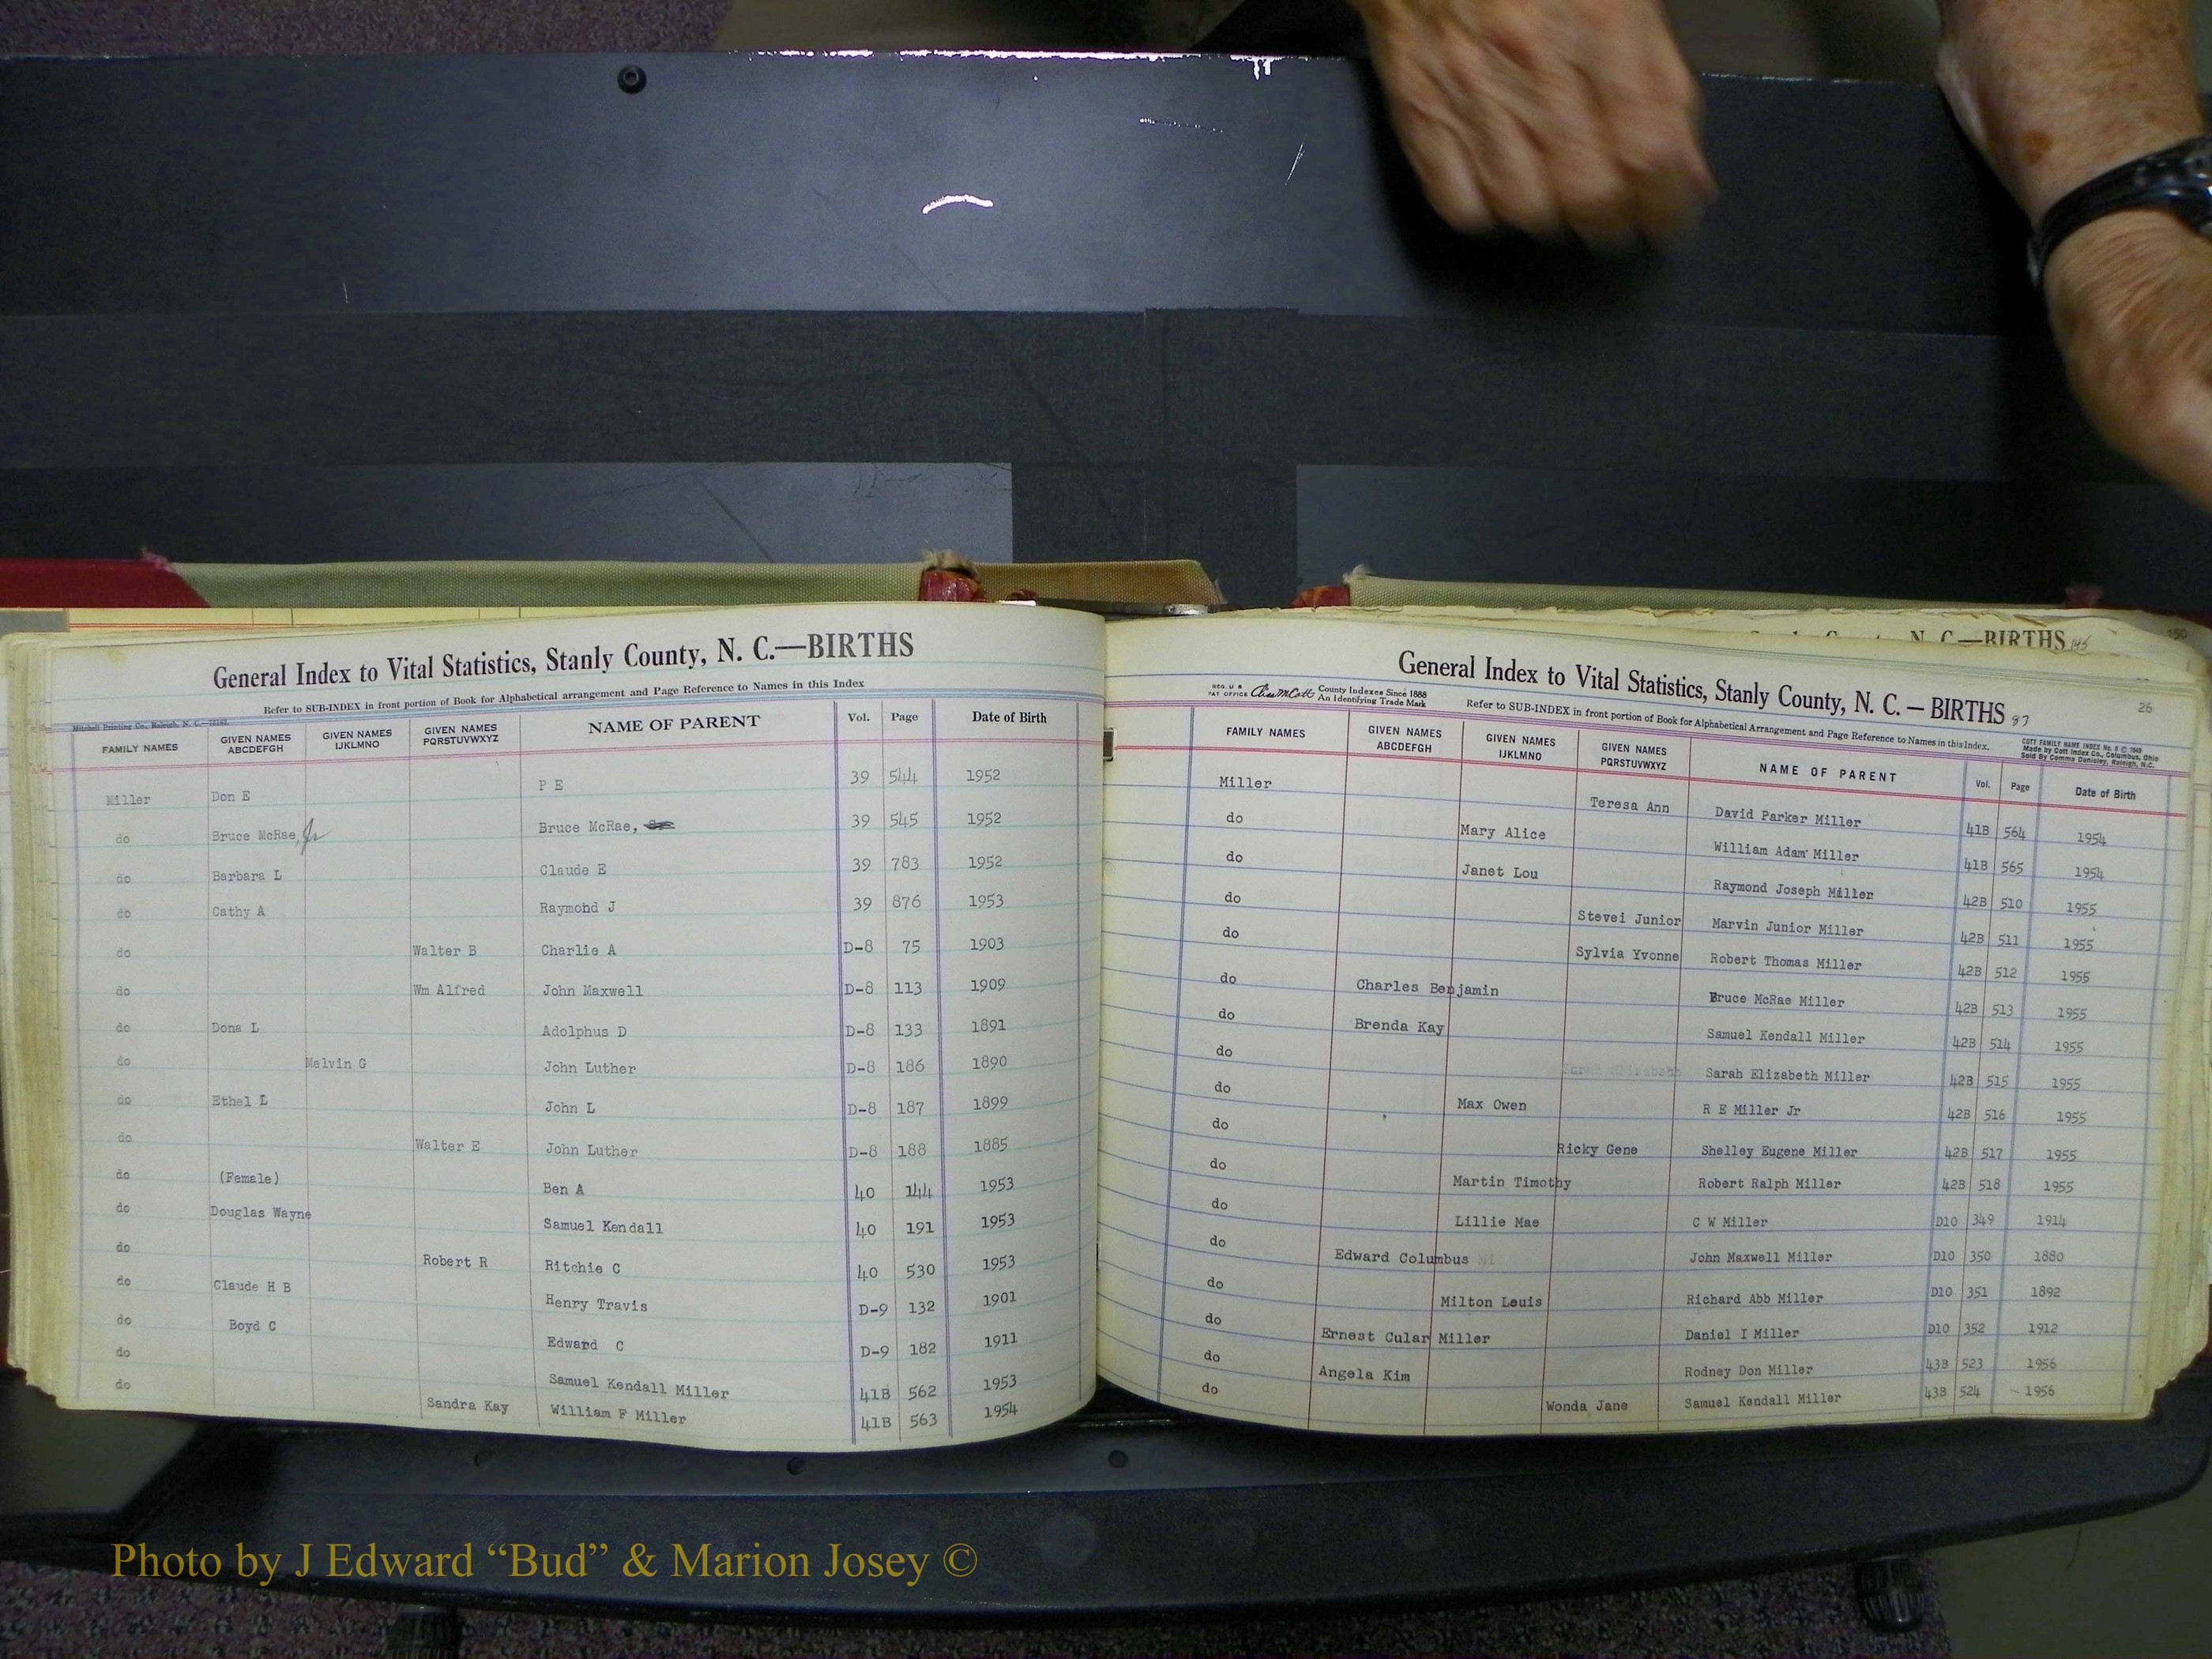 General Index to Vital Statistics, Stanly County, N. C.—BIRTHS
Refer to SUB-INDEX in front portion of Book for Alphabetical arrangement and Page Reference to Names in this Index
Mitchell Printing Co., Raleigh, N. C.
FAMILY NAMES GIVEN NAMES ABCDEFGH GIVEN NAMES IJKLMNO GIVEN NAMES PQRSTUVWXYZ NAME OF PARENT Vol. Page Date of Birth
Miller Don E P E 39 544 1952
do Bruce McRae, Jr Bruce McRae, 39 545 1952
do Barbara L Claude E 39 783 1952
do Cathy A Raymond J 39 876 1953
do Walter B Charlie A D-8 75 1903
do Wm Alfred John Maxwell D-8 113 1909
do Dona L Adolphus D D-8 133 1891
do Melvin G John Luther D-8 186 1890
do Ethel L John L D-8 187 1899
do Walter E John Luther D-8 188 1885
do (Female) Ben A 40 144 1953
do Douglas Wayne Samuel Kendall 40 191 1953
do Robert R Ritchie C 40 530 1953
do Claude H B Henry Travis D-9 132 1901
do Boyd C Edward C D-9 182 1911
do Samuel Kendall Miller 41B 562 1953
do Sandra Kay William F Miller 41B 563 1954
N. C.—BIRTHS 145
150
General Index to Vital Statistics, Stanly County, N. C. — BIRTHS 87
26
REG. U S PAT OFFICE County Indexes Since 1888 An Identifying Trade Mark
Refer to SUB-INDEX in front portion of Book for Alphabetical Arrangement and Page Reference to Names in this Index.
COTT FAMILY NAME INDEX No. 5 © 1949
Made by Cott Index Co., Columbus, Ohio
Sold By Comma Danieley, Raleigh, N.C.
FAMILY NAMES GIVEN NAMES ABCDEFGH GIVEN NAMES IJKLMNO GIVEN NAMES PQRSTUVWXYZ NAME OF PARENT Vol. Page Date of Birth
Miller Teresa Ann David Parker Miller 41B 564 1954
do Mary Alice William Adam Miller 41B 565 1954
do Janet Lou Raymond Joseph Miller 42B 510 1955
do Stevei Junior Marvin Junior Miller 42B 511 1955
do Sylvia Yvonne Robert Thomas Miller 42B 512 1955
do Charles Benjamin Bruce McRae Miller 42B 513 1955
do Brenda Kay Samuel Kendall Miller 42B 514 1955
do Sarah Elizabeth Miller 42B 515 1955
do Max Owen R E Miller Jr 42B 516 1955
do Ricky Gene Shelley Eugene Miller 42B 517 1955
do Martin Timothy Robert Ralph Miller 42B 518 1955
do Lillie Mae C W Miller D10 349 1914
do Edward Columbus John Maxwell Miller D10 350 1880
do Milton Louis Richard Abb Miller D10 351 1892
do Ernest Cular Miller Daniel I Miller D10 352 1912
do Angela Kim Rodney Don Miller 43B 523 1956
do Wonda Jane Samuel Kendall Miller 43B 524 1956
Photo by J Edward “Bud” & Marion Josey ©